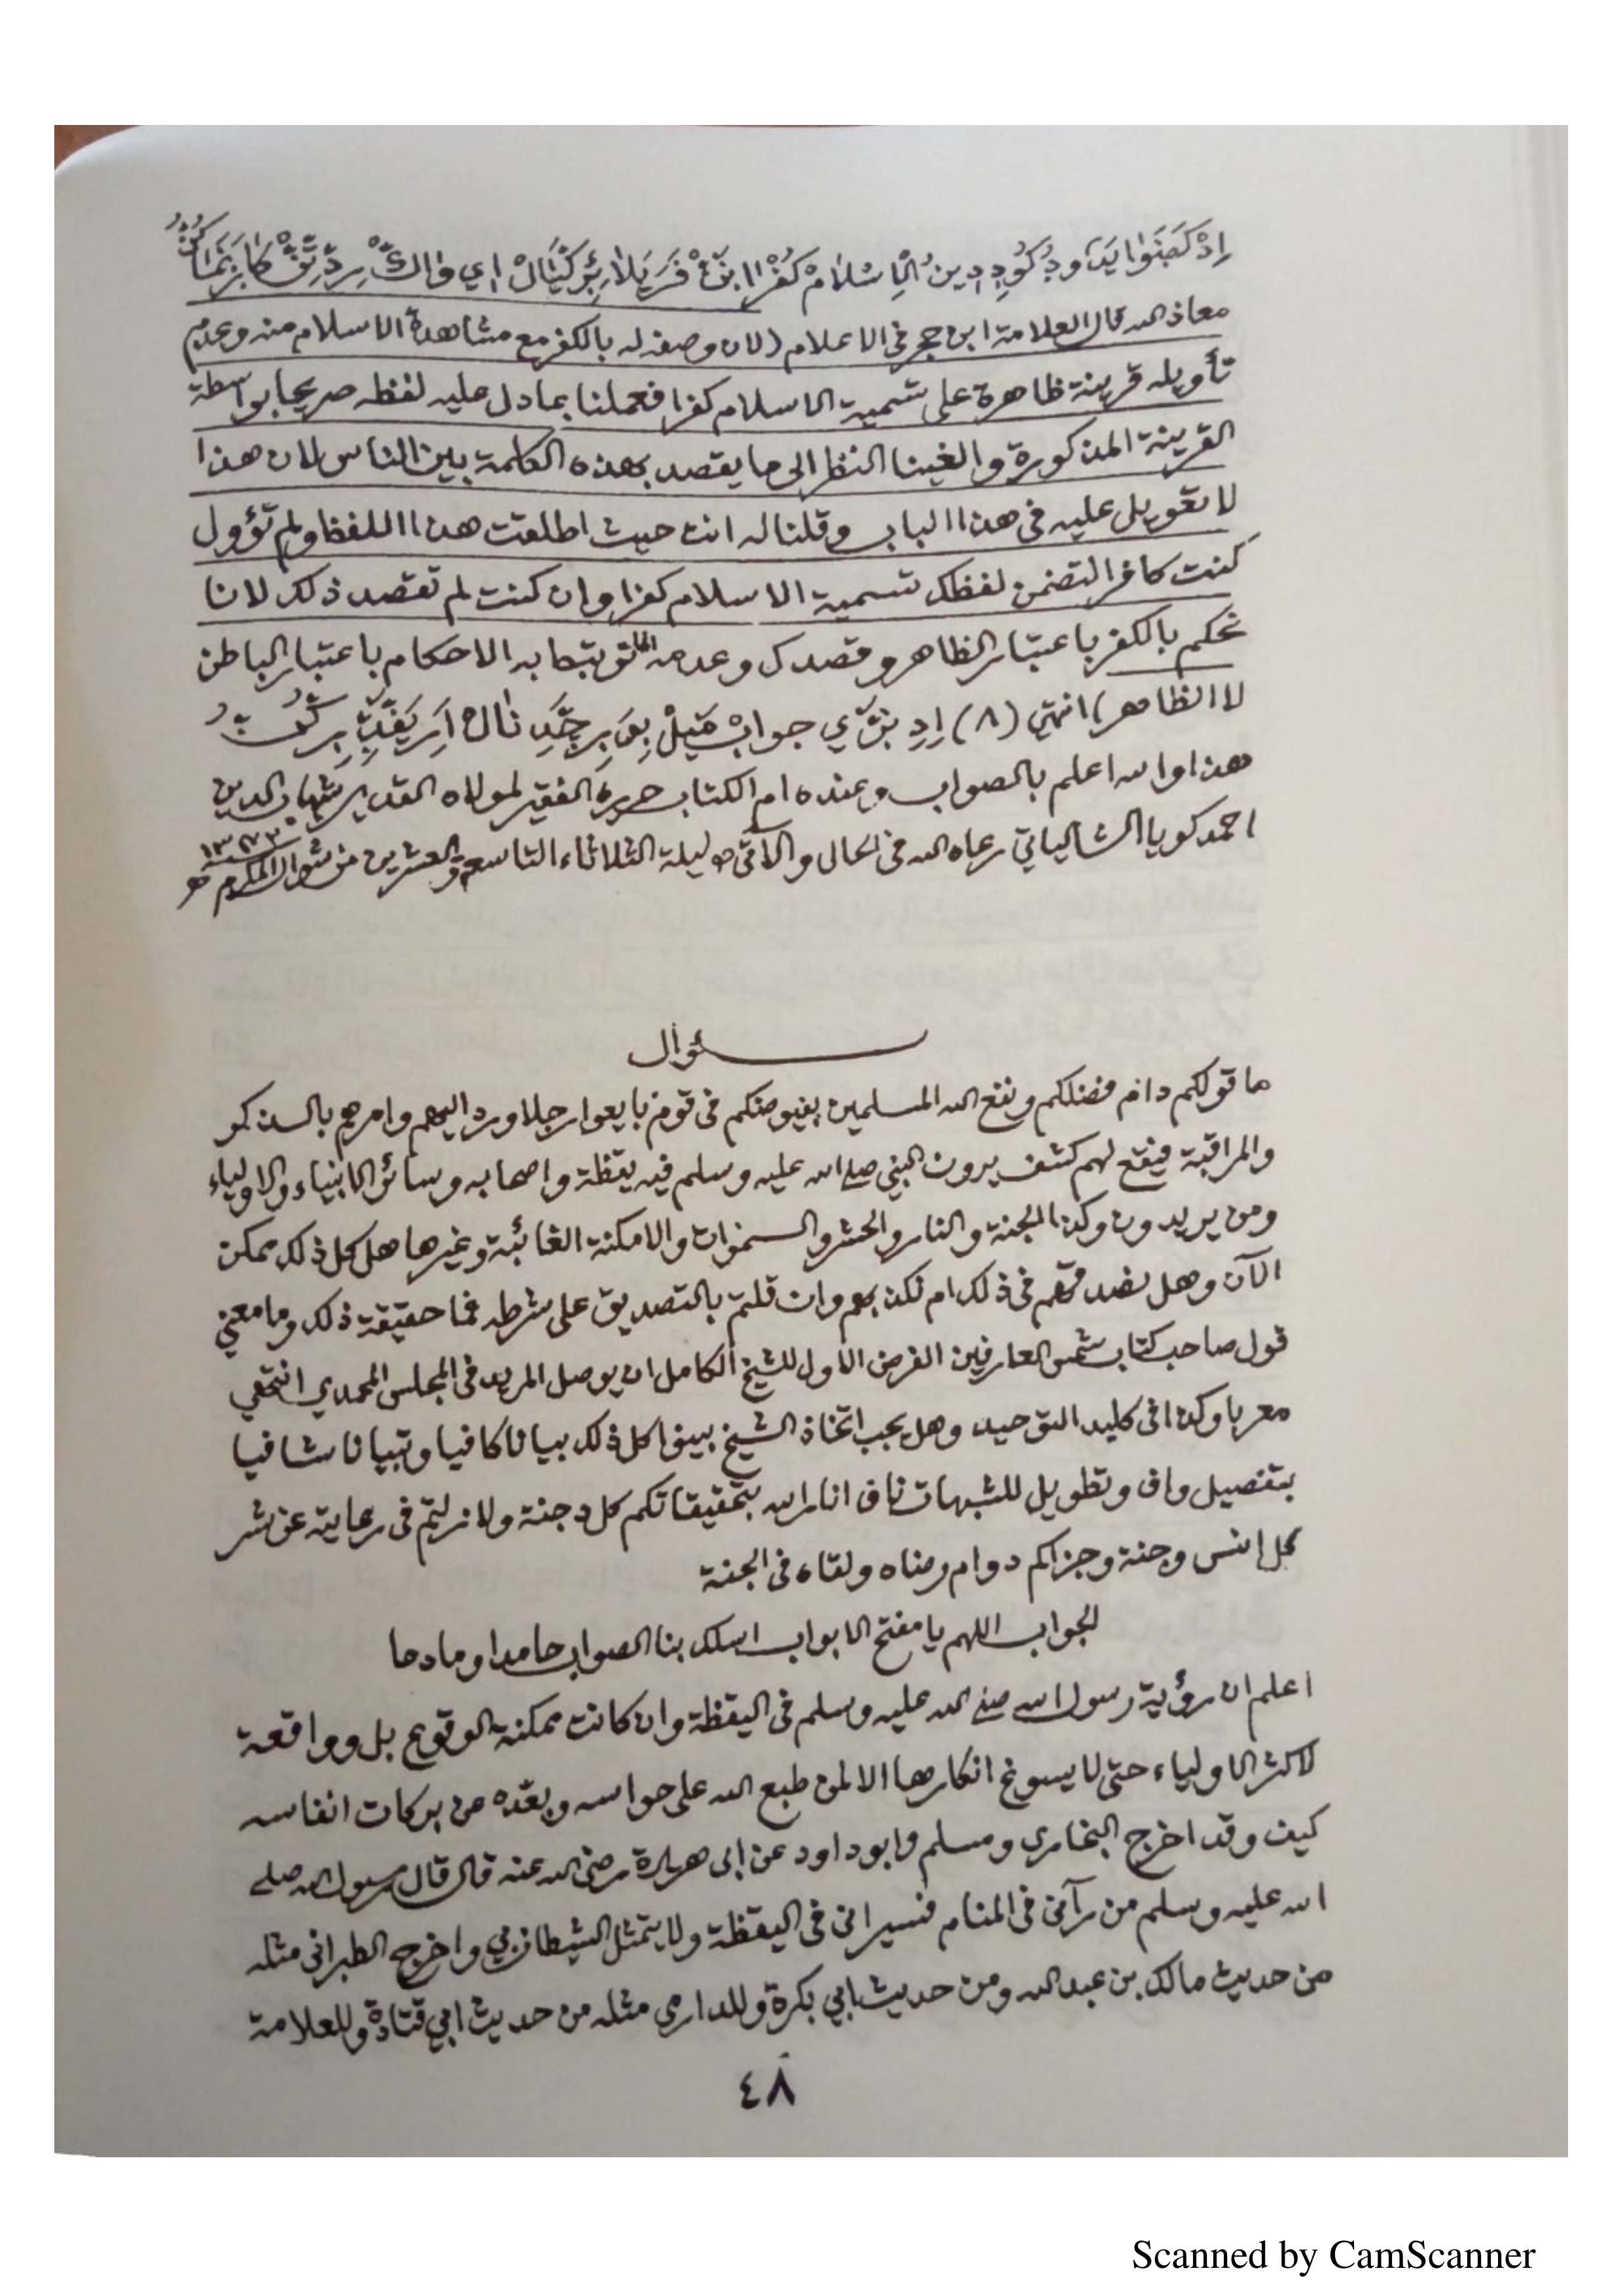 معاذ الله قال العلامة ابن حجر فى الاعلام (لان وصفه له بالكفر مع مشاهدة الاسلام منه وعدم
تأويله قرينة ظاهرة على تسمية الاسلام كفرا فعملنا بما دل عليه لفظه صريحا بواسطة
القرينة المذكورة والغينا النظر الى ما يقصد بهذه الكلمة بين الناس لان هذا
لا تعويل عليه فى هذا الباب وقلنا له انت حيث اطلعت هذا اللفظ ولم تؤول
كنت كافرا لتضمن لفظك تسمية الاسلام كفرا وان كنت لم تقصد ذلك لانا
نحكم بالكفر باعتبار الظاهر وقصدك وعدمه انما ترتبط به الاحكام باعتبار الباطن
لا الظاهر) انتهى (٨)
هذا والله اعلم بالصواب وعنده ام الكتاب حرره الفقير لمولاه القدير شهاب الدين
احمد كويا الشالياتي رعاه الله فى الحال والآتى ليلة الثلاثاء التاسع والعشرين من شوال المكرم
سؤال
ما قولكم دام فضلكم ونفع الله المسلمين بفيوضكم فى قوم بايعوا رجلا ورد اليهم وامرهم بالذكر
والمراقبة فيقع لهم كشف يرون النبي صلى الله عليه وسلم فيه يقظة واصحابه وسائر الانبياء والاولياء
ومن يريدون وكذا الجنة والنار والحشر والسموات والامكنة الغائبة وغيرها هل كل ذلك ممكن
الآن وهل نصدقهم فى ذلك ام نكذبهم وان قلتم بالتصديق على شرطه فما حقيقة ذلك وما معنى
قول صاحب كتاب شمس العارفين الفرض الاول للشيخ الكامل ان يوصل المريد فى المجلس المحمدي انتهى
معربا وكذا فى كليد التوحيد وهل يجب اتخاذ الشيخ بينوا كل ذلك بيانا كافيا وتبيانا شافيا
بتفصيل واف وتطويل للشبهات ناف انار الله بتحقيقاتكم كل دجنة ولا زلتم فى رعايته عن شر
كل انس وجنة وجزاكم دوام رضاه ولقاءه فى الجنة
الجواب اللهم يا مفتح الابواب اسلك بنا الصواب حامدا ومادحا
اعلم ان رؤية رسول الله صلى الله عليه وسلم فى اليقظة وان كانت ممكنة الوقوع بل وواقعة
لاكثر الاولياء حتى لا يسوغ انكارها الا لمن طبع الله على حواسه وبعّده من بركات انفاسه
كيف وقد اخرج البخاري ومسلم وابو داود عن ابى هريرة رضى الله عنه قال قال رسول الله صلى
الله عليه وسلم من رآنى فى المنام فسيرانى فى اليقظة ولا يتمثل الشيطان بي واخرج الطبرانى مثله
من حديث مالك بن عبد الله ومن حديث ابي بكرة وللدارمي مثله من حديث ابي قتادة وللعلامة
٤٨
Scanned by CamScanner